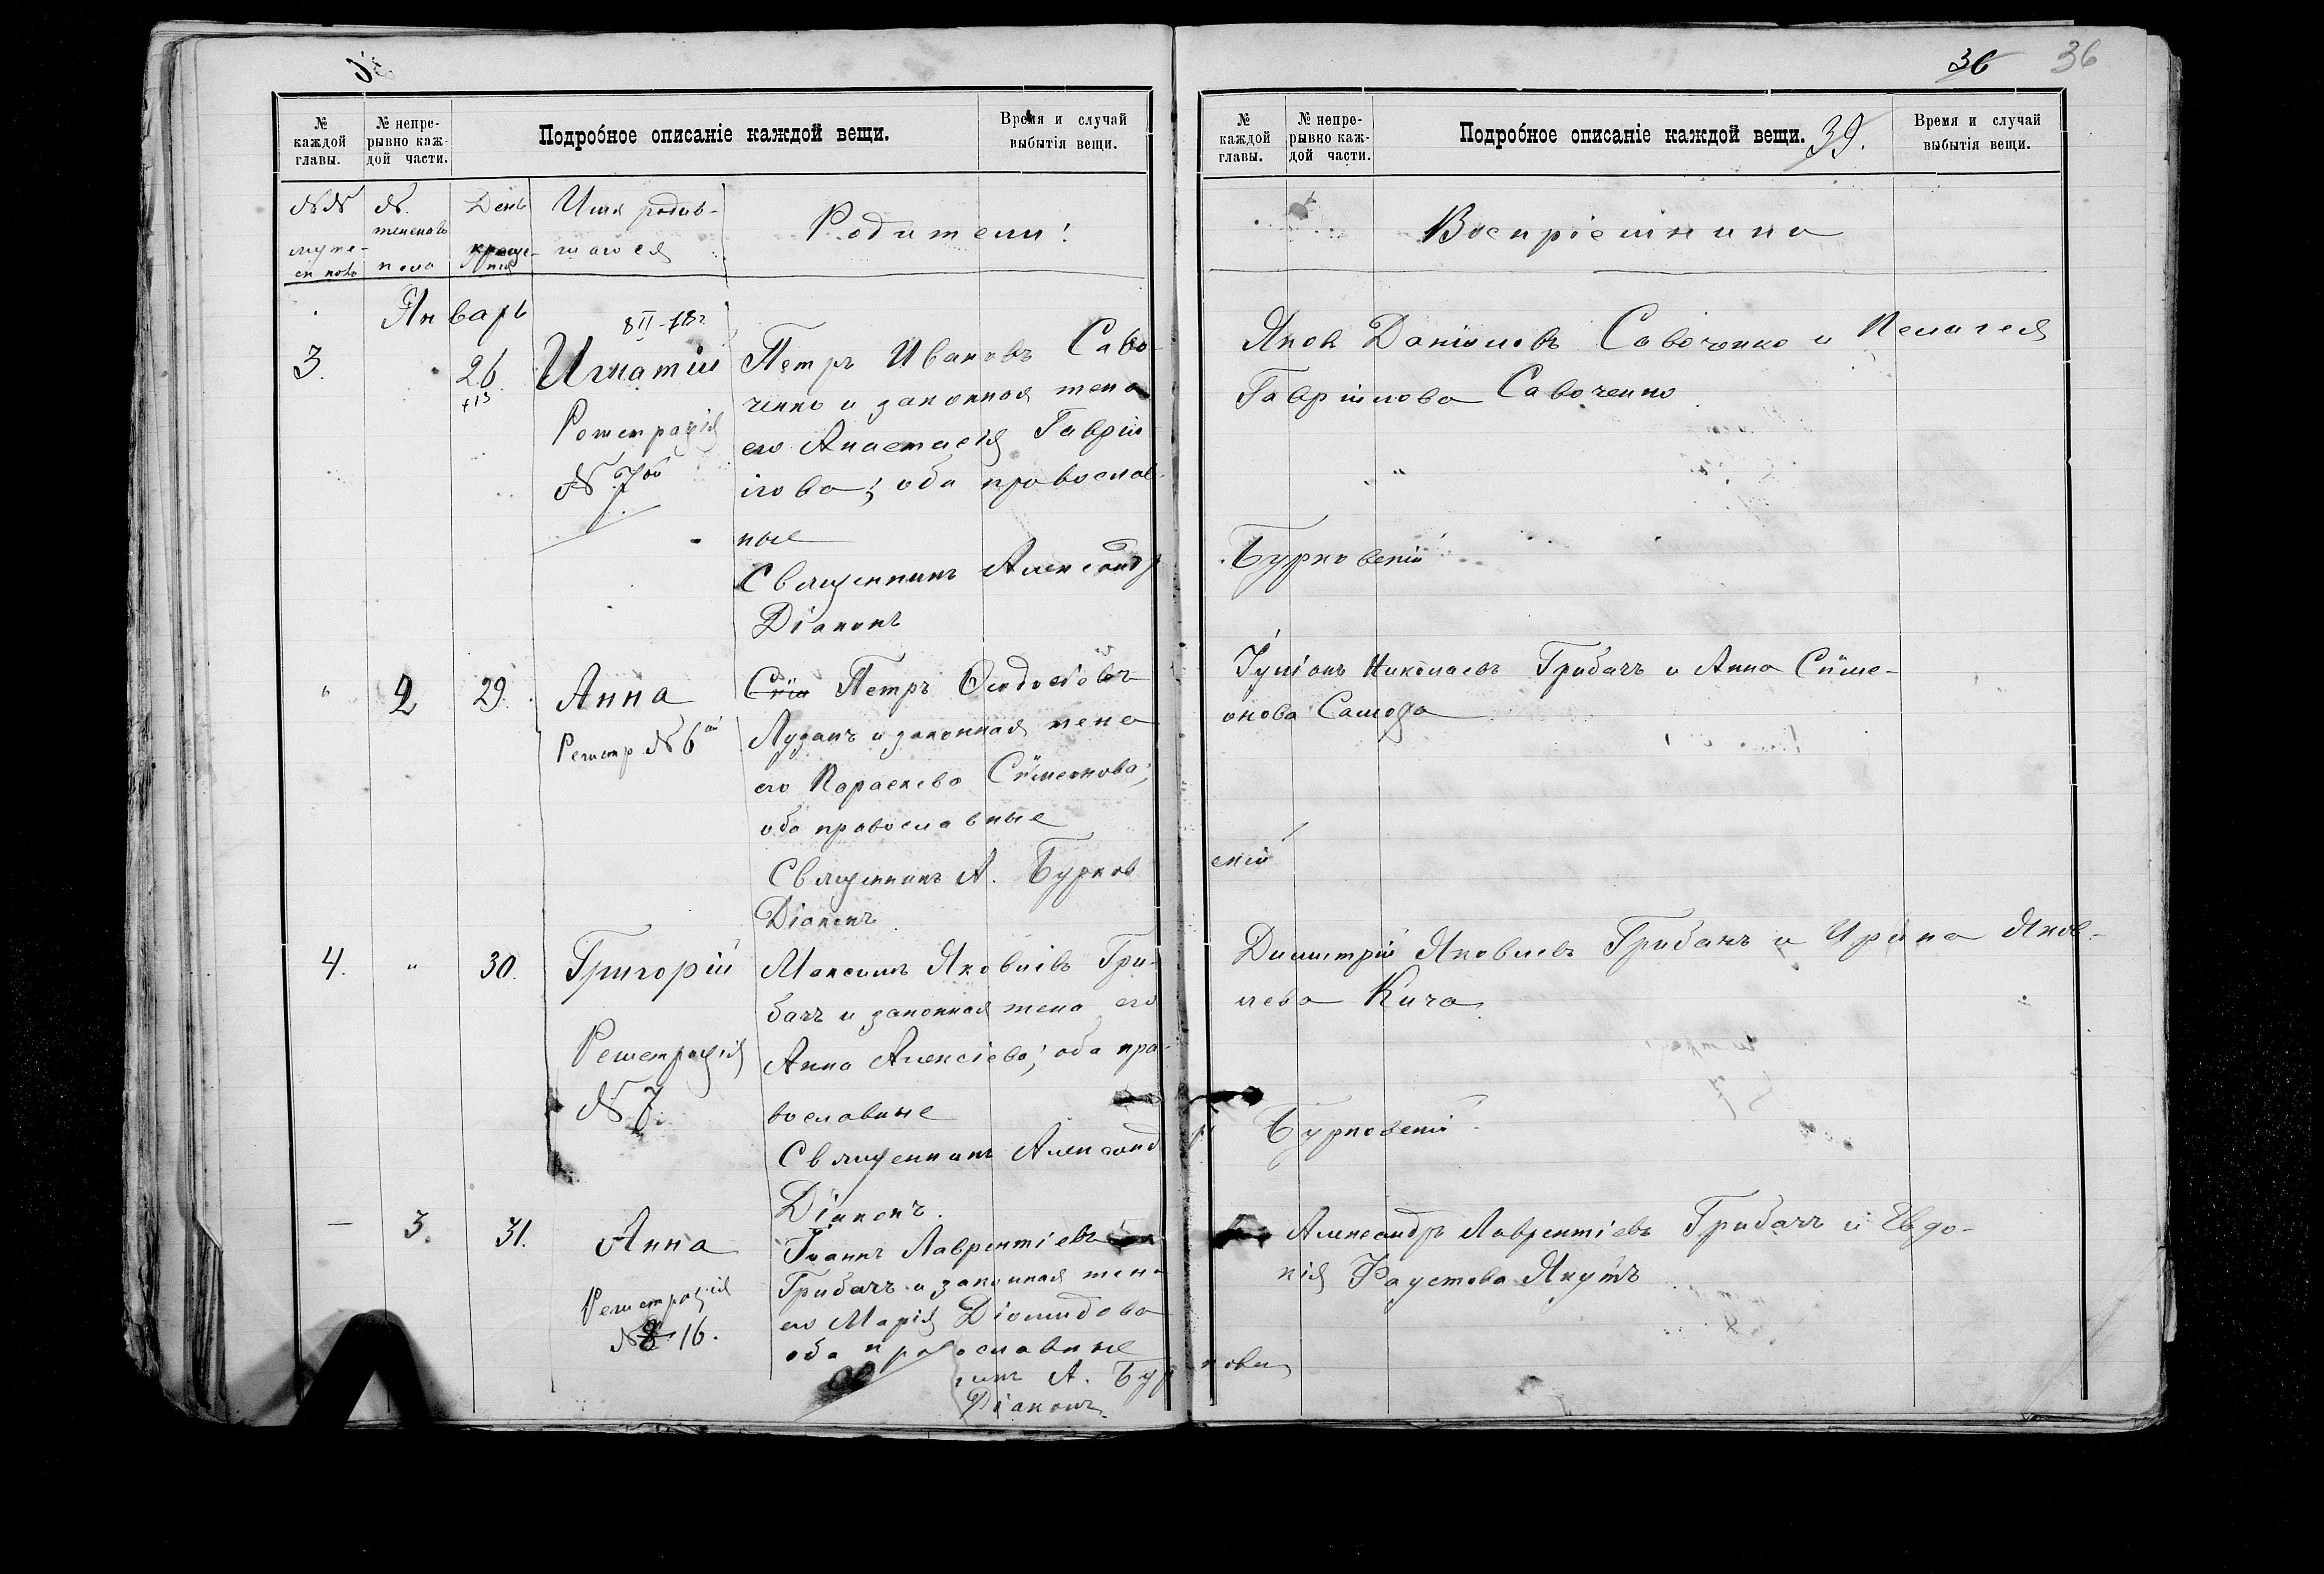 № каждой главы.
№ непре-рывно каж-дой части.
Подробное описаніе каждой вещи.
Время и случай выбытія вещи.
№№ мужескаго
№. женскаго пола
День крещенія
Имя родив-
шагося
Родители:
Январь
3.
26
+13
8 II - 18 г
Игнатій
№ 7
Петръ Ивановъ Саво-
ченко и законная жена
его Анастасія Гаврі
ілова; оба православ-
ные
Священникъ Александръ
Діаконъ
"
2
29.
Анна
Регистр № 6
Петръ Ѳеодосіевъ
Лузанъ и законная жена
его Параскева Сѵмеонова;
оба православные
Священникъ А. Бурков
Діаконъ
4.
"
30.
Григорій
Регистрація
№ 7.
Максимъ Яковлевъ Гри-
бачъ и законная жена его
Анна Алексіева; оба пра-
вославные
Священникъ Александ
Діаконъ.
—
3.
31.
Анна
Регистрація
№ 8 16.
Іоаннъ Лаврентіевъ
Грибачъ и законная жена
его Марія Діомидова
оба православные
никъ А. Бур
Діаконъ
36 36
№ каждой главы.
№ непре-рывно каж-дой части.
Подробное описаніе каждой вещи.
39.
Время и случай выбытія вещи.
Воспріемники
Яковъ Даніиловъ Савоченко и Пелагея
Гавріилова Савоченко
"
Бурковскій
Іуліанъ Николаевъ Грибачъ и Анна Сѵме-
онова
скій
Димитрій Яковлевъ Грибачъ и Ирина Яков-
лева Кича
ръ Бурковскій
Александръ Лаврентіевъ Грибачъ и Евдо-
кія Фаустова